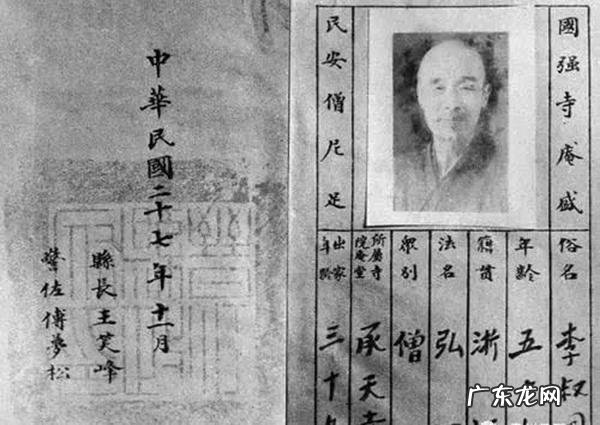 國强寺庵盛
俗名 李叔
年齡 五
籍貫 浙
法名 弘
衆別 僧
所屬寺院庵堂 承天
出家年 三十
民安僧尼足
中華民國二十七年十一月
縣長王笑峰
警佐傅夢松
广东龙网